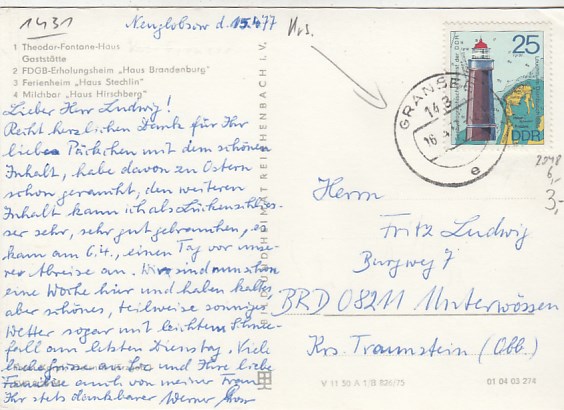 1431
Neuglobsow d. 15.4.77
Hrs.
1 Theodor-Fontane-Haus
Gaststätte
2 FDGB-Erholungsheim „Haus Brandenburg"
3 Ferienheim „Haus Stechlin"
4 Milchbar „Haus Hirschberg"
Lieber Herr Ludwig!
Recht herzlichen Danke für Ihr
liebes Päckchen mit dem schönen
Inhalt, habe davon zu Ostern
schon geraucht, den weiteren
Inhalt kann ich als Lückenschlies-
ser sehr, sehr gut gebrauchen, es
kam am 6.4., einen Tag vor unse-
rer Abreise an. Wir sind nun schon
eine Woche hier und haben kaltes,
aber schönes, teilweise sonniges
Wetter sogar mit leichtem Schnee-
fall am letzten Dienstag. Viele
liebe Grüsse an Sie und Ihre liebe
Familie auch von meiner Frau
Ihr stets dankbarer Werner
BILD UND HEIMAT REICHENBACH I. V.
GRANSEE
143
16
e
25
DDR
2048
6,-
3,-
Herrn
Fritz Ludwig
Burgweg 7
BRD 08211 Unterwössen
Krs. Traunstein (Obb.)
V 11 50 A 1/B 826/75
01 04 03 274